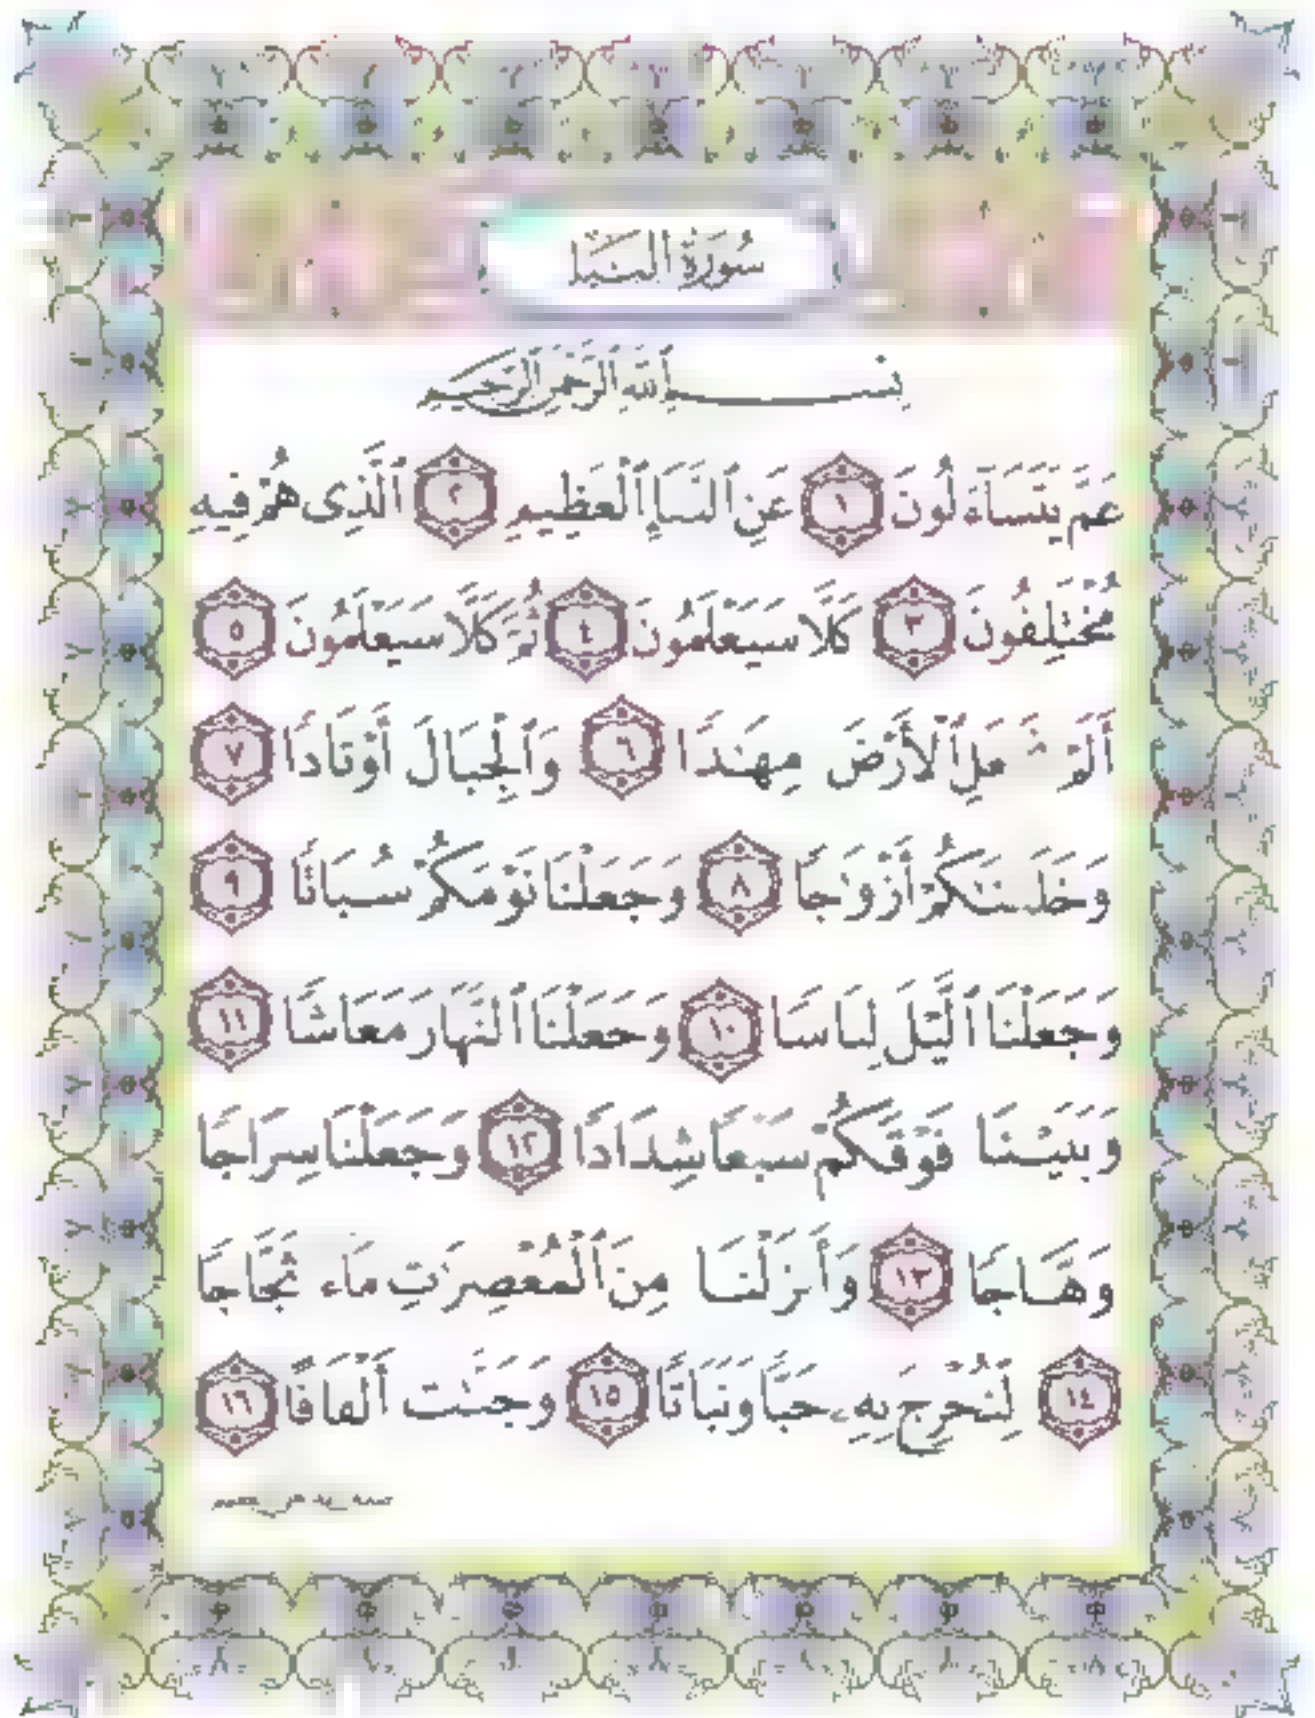 سُورَةُ النَّبَإِ
بِسْمِ اللَّهِ الرَّحْمَٰنِ الرَّحِيمِ
عَمَّ يَتَسَآءَلُونَ ١ عَنِ ٱلنَّبَإِ ٱلْعَظِيمِ ٢ ٱلَّذِى هُمْ فِيهِ
مُخْتَلِفُونَ ٣ كَلَّا سَيَعْلَمُونَ ٤ ثُمَّ كَلَّا سَيَعْلَمُونَ ٥
أَلَمْ نَجْعَلِ ٱلْأَرْضَ مِهَٰدًا ٦ وَٱلْجِبَالَ أَوْتَادًا ٧
وَخَلَقْنَٰكُمْ أَزْوَٰجًا ٨ وَجَعَلْنَا نَوْمَكُمْ سُبَاتًا ٩
وَجَعَلْنَا ٱلَّيْلَ لِبَاسًا ١٠ وَجَعَلْنَا ٱلنَّهَارَ مَعَاشًا ١١
وَبَنَيْنَا فَوْقَكُمْ سَبْعًا شِدَادًا ١٢ وَجَعَلْنَا سِرَاجًا
وَهَّاجًا ١٣ وَأَنزَلْنَا مِنَ ٱلْمُعْصِرَٰتِ مَآءً ثَجَّاجًا
١٤ لِّنُخْرِجَ بِهِۦ حَبًّا وَنَبَاتًا ١٥ وَجَنَّٰتٍ أَلْفَافًا ١٦